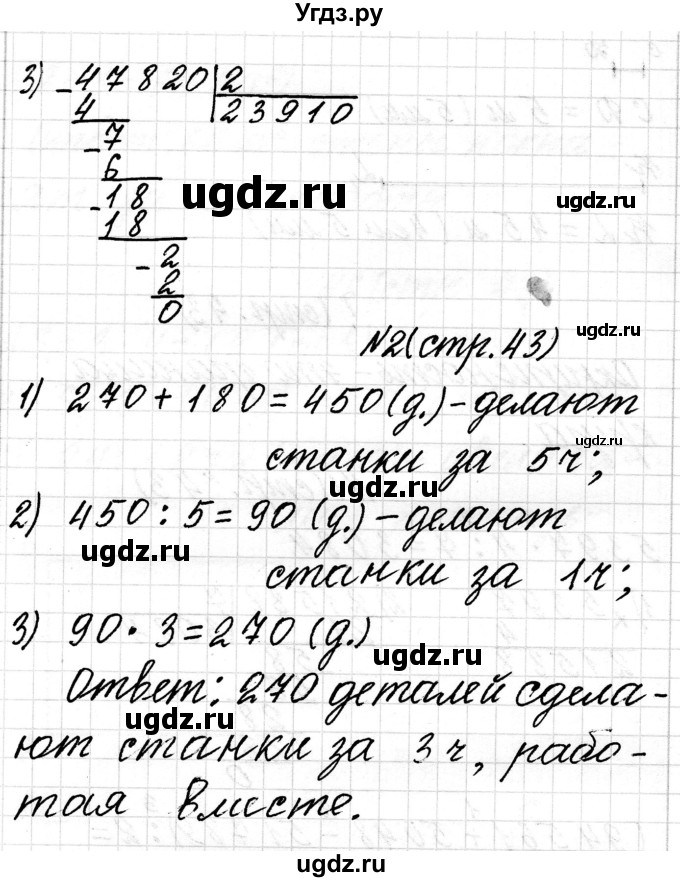 Угдз.ру
3) - 47820 | 2
4 23910
- 7
6
- 18
18
- 2
2
0
ugdz.ru
ugdz.ru
№2(стр.43)
1) 270 + 180 = 450 (д.) - делают
ugdz.ru
станки за 5ч;
ugdz.ru
2) 450 : 5 = 90 (д.) - делают
ugdz.ru
станки за 1ч;
3) 90 · 3 = 270 (д.)
ugdz.ru
Ответ: 270 деталей сдела-
ugdz.ru
ют станки за 3ч, рабо-
тая вместе.
ugdz.ru